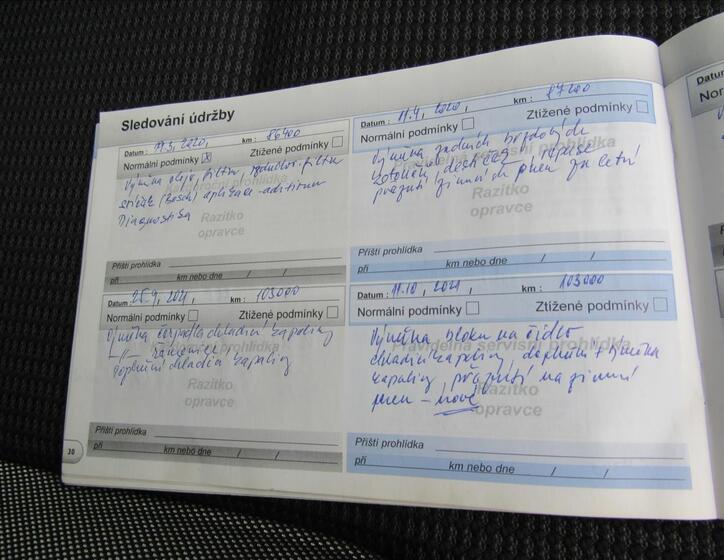 Sledování údržby
Datum : 17.3, 2020, km : 86400
Normální podmínky X Ztížené podmínky
Výměna oleje, filtru, vzduchov. filtru
svíček (Bosch) aplikace aditivum
Diagnostika
Razítko
opravce
Příští prohlídka
při km nebo dne / /
Datum : 11.4, 2020, km : 87200
Normální podmínky Ztížené podmínky
Výměna zadních brzdových
kotoučů, destiček,
přezutí zimních pneu za letní
Pravidelná servisní prohlídka
Razítko
opravce
Příští prohlídka
při km nebo dne / /
Datum : 25.9, 2021, km : 103000
Normální podmínky Ztížené podmínky
Výměna čerpadla chladící kapaliny
-"- řemenice
Doplnění chladící kapaliny
Razítko
opravce
Příští prohlídka
při km nebo dne / /
Datum : 11.10, 2021, km : 103000
Normální podmínky Ztížené podmínky
Výměna bloku na čidlo
chladící kapaliny, doplnění + výměna
kapaliny přezutí na zimní
pneu - nové
Pravidelná servisní prohlídka
Razítko
opravce
Příští prohlídka
při km nebo dne / /
30
Datum
Nor